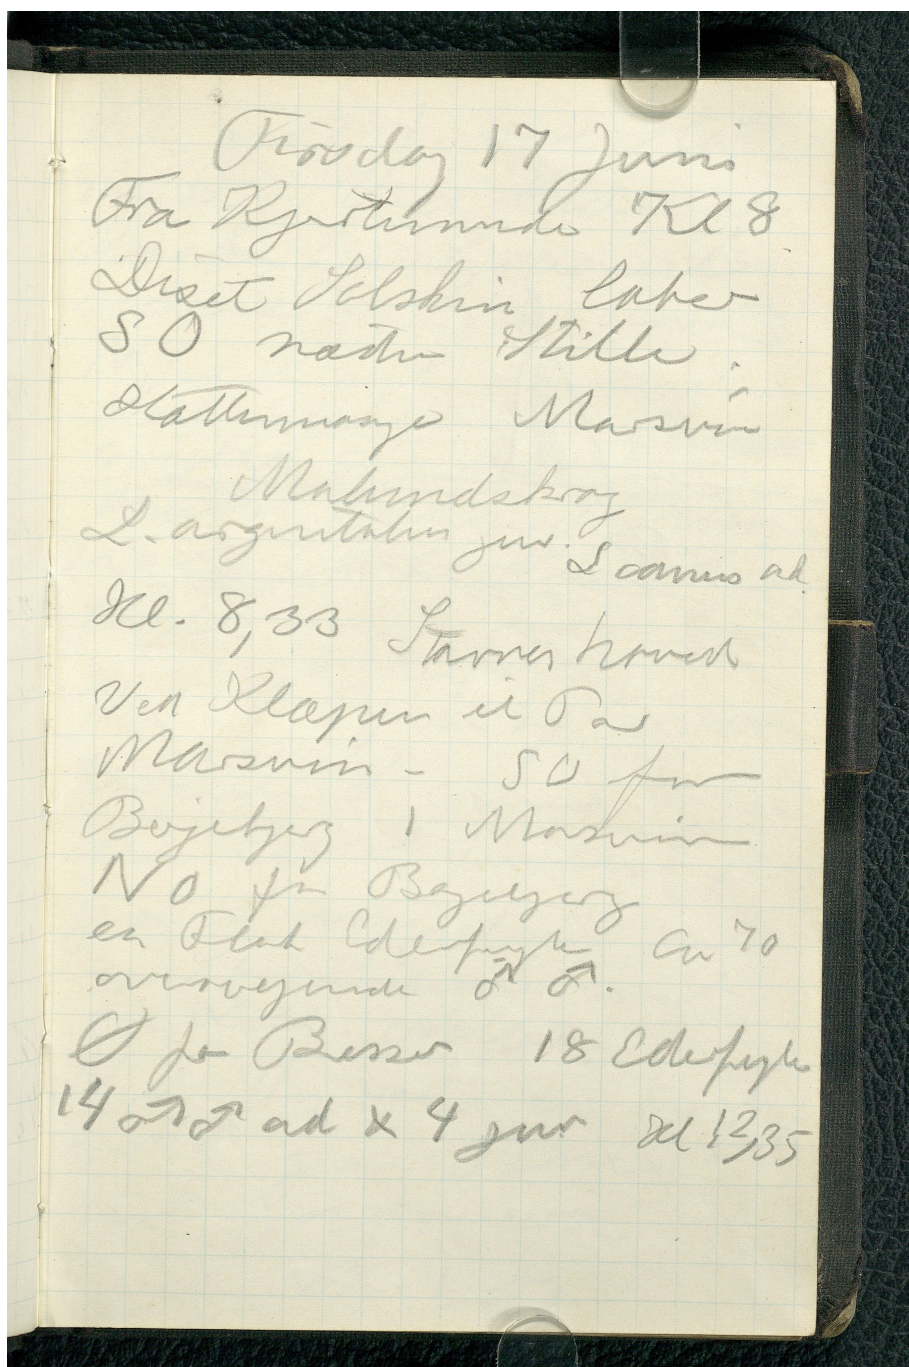 Tirsdag 17 Juni
Fra Kjerteminde Kl 8
Diset Solskin laber
SO næsten Stille.
Marsvin
L. argentatus juv. L canus ad.
Kl. 8,33 Stavres hoved
Ved Klæpen et Par
Marsvin - SO for
Bøjebjerg 1 Marsvin
NO for Bøgebjerg
en Flok Ederfugle Ca 70
overvejende ♂ ♂.
Ø for Besser 18 Ederfugle
14 ♂♂ ad x 4 juv Kl 12,35